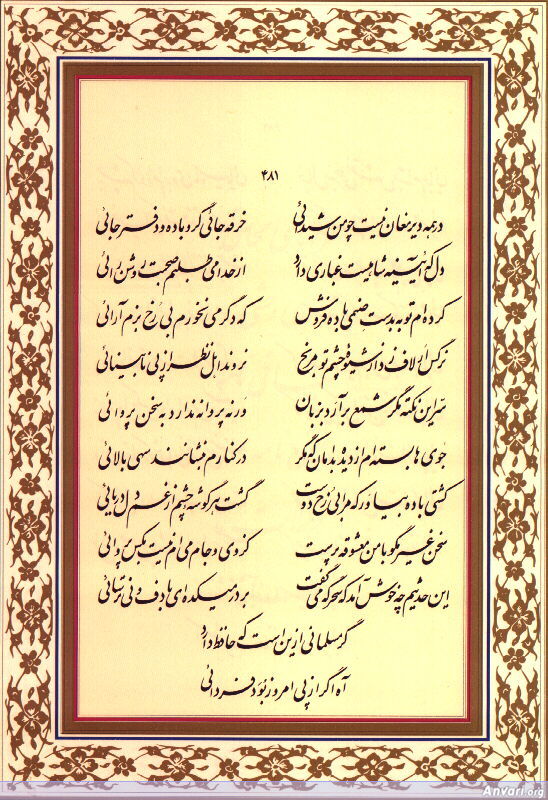 ۴۸۱
در همه دیر مغان نیست چو من شیدائی خرقه جائی گرو باده و دفتر جائی
دل که آئینه شاهیست غباری دارد از خدا می طلبم صحبت روشن رائی
کرده ام توبه به دست صنمی باده فروش که دگر می نخورم بی رخ بزم آرائی
نرگس ار لاف زد از شیوه چشم تو مرنج نروند اهل نظر از پی نابینائی
سر این نکته مگر شمع برآرد بزبان ورنه پروانه ندارد به سخن پروائی
جوی ها بسته ام از دیده بدامان که مگر در کنارم بنشانند سهی بالائی
کشتی باده بیاور که مرا بی رخ دوست گشت هر گوشه چشم از غم دل دریائی
سخن غیر مگو با من معشوقه پرست کز وی و جام می ام نیست بکس پروائی
این حدیثم چه خوش آمد که سحرگه می گفت بر در میکده ای با دف و نی ترسائی
گر مسلمانی ازین است که حافظ دارد
آه اگر از پی امروز بود فردائی
Anvari.org